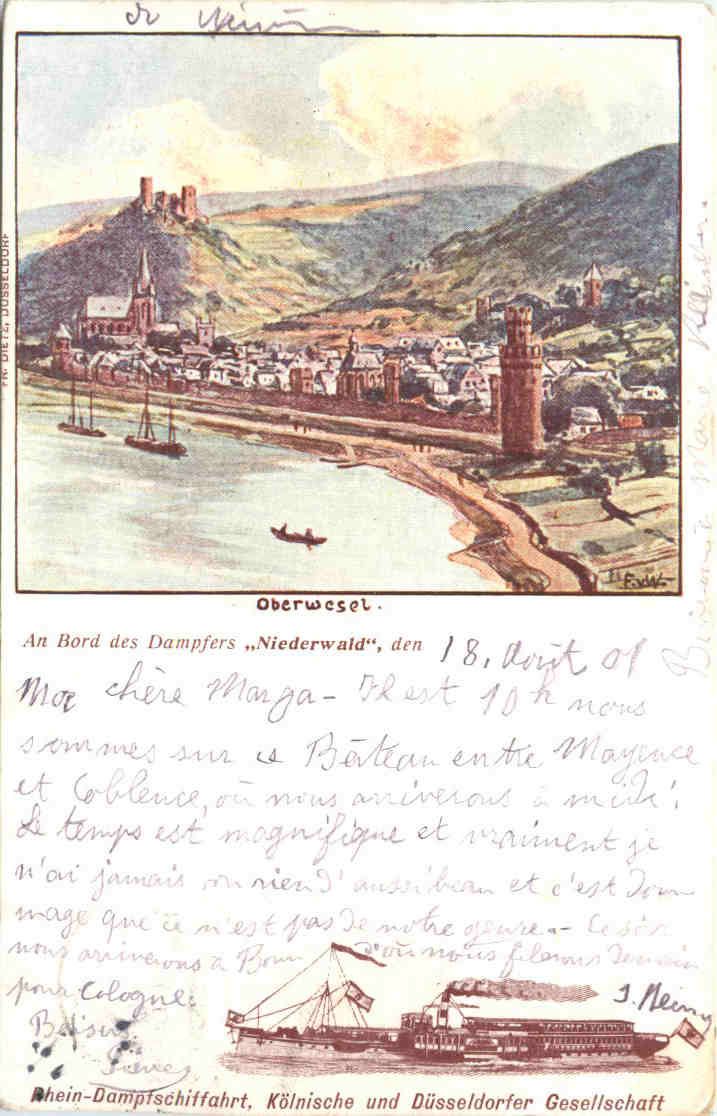 FR. DIETZ, DÜSSELDORF
E.v.W.
Oberwesel.
An Bord des Dampfers „Niederwald“, den 18. Août 01
Ma chère Marga - Il est 10h nous
sommes sur ce Bâteau entre Mayence
et Coblence, où nous arriverons à midi.
Le temps est magnifique et vraiment je
n'ai jamais vu rien d'aussi beau et c'est dom
mage que ce n'est pas de notre genre. - Ce soir
nous arriverons à Bonn d'où nous filerons demain
pour Cologne.
Marie
Rhein-Dampfschiffahrt, Kölnische und Düsseldorfer Gesellschaft